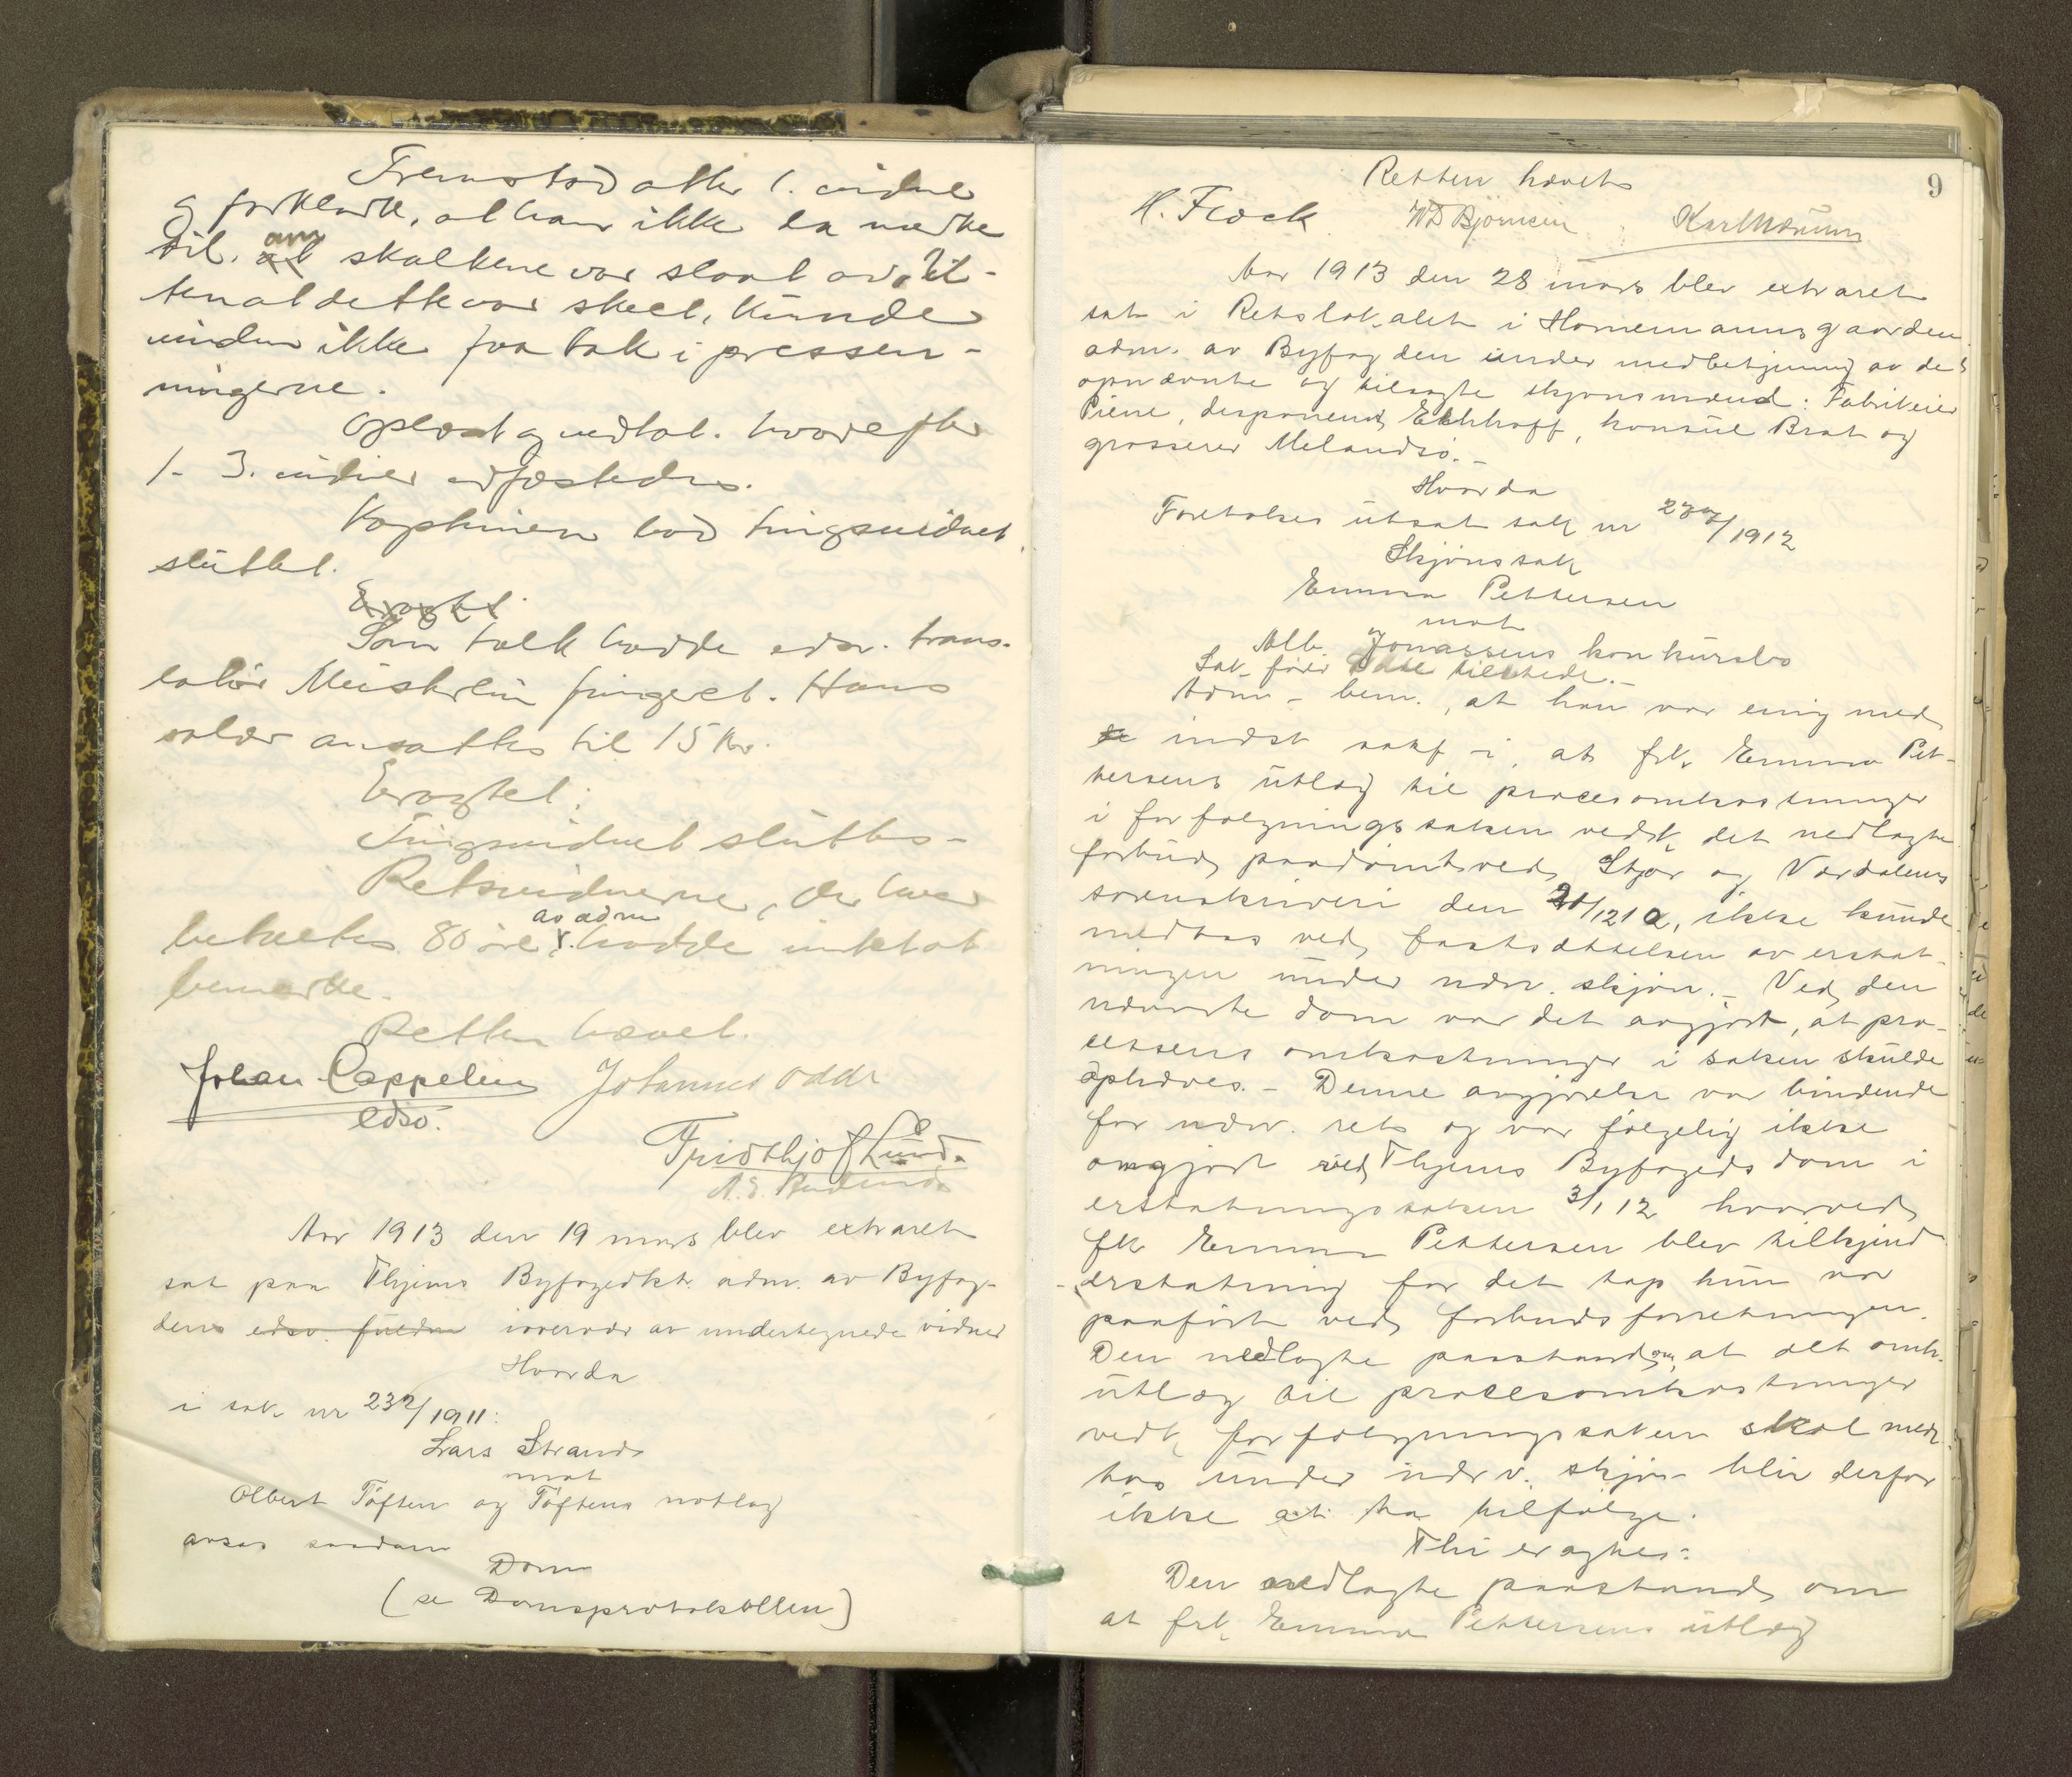 Fremstod atter 1. vidne
og forklarte, at han ikke la merke
til, om skalkene var slaat av. Ut-
ten at dette var skeet, kunde
vinden ikke faa tak i pressen-
ningerne.
Oplæst og vedtat. hvorefter
1 - 3. vidner edfæstedes.
Kapteinen bad tingsvidnet
sluttet.
Eragtet
Som tolk hadde edsv. trans-
latør Meisterlin fungeret. Hans
salær ansattes til 15 Kr.
Eragtet:
Tingsvidnet sluttes -
Retsvidnerne, der hver
betaltes 80 øre av adm. hadde intet at
bemerke.
Retten hævet.
Johan Cappelen Johannes Odde
edsv.
Fridthjof Lund.
Aar 1913 den 19 mars blev extraret
sat paa Thjems Byfogedkt. adm. av Byfog-
dens edsv. fuldm overvær av undertegnede vidner
Hvorda
i sak nr 232/1911:
Lars Strand
mot
Albert Töften og Töftens notlag
avsas saadan
Dom
(se Domsprotokollen)
9
Retten hævets
H. Flock WD Björnsen
Aar 1913 den 28 mars blev extraret
sat i Retslokalet i Hornemannsgaarden
adm. av Byfogden under medbetjening av de
opnævnte og tilsagte skjønsmænd: Fabrikeier
Piene, disponent Eckhoff, konsul Brat og
grosserer Melandsö. -
Hvorda
Foretokes utsat sak nr /1912
Skjønssak
Emma Pettersen
mot
Alb. Jonassens konkursbo
Sak-fører tilstede. -
Adm - bem., at han var enig med
indst sakf i, at frk. Emma Pet-
tersens utlæg til procesomkostninger
i forfølgningssaken vedk. det nedlagte
forbud, paadömt ved Stjør og Værdalens
sorenskriveri den 21/12 10, ikke kunde
medtas ved fastsættelsen av erstat-
ningen under nærv. skjøn. - Ved den
nævnte dom var det avgjort, at pro-
cessens omkostninger i saken skulde
ophæves. - Denne avgjørelse var bindende
for nærv. ret og var følgelig ikke
omgjort ved Thjems Byfogeds dom i
erstatningssaken 3/1 12 hvorved
frk Emma Pettersen blev tilkjend
erstatning for det tap hun var
paaført ved forbudsforretningen.
Den nedlagte paastand om, at det omh.
utlæg til procesomkostninger
vedk. forfølgningssaken skal med-
tas under nærv. skjøn - blir derfor
ikke at ta tilfølge.
Thi eragtes:
Den nedlagte paastand om
at frk. Emma Pettersens utlæg